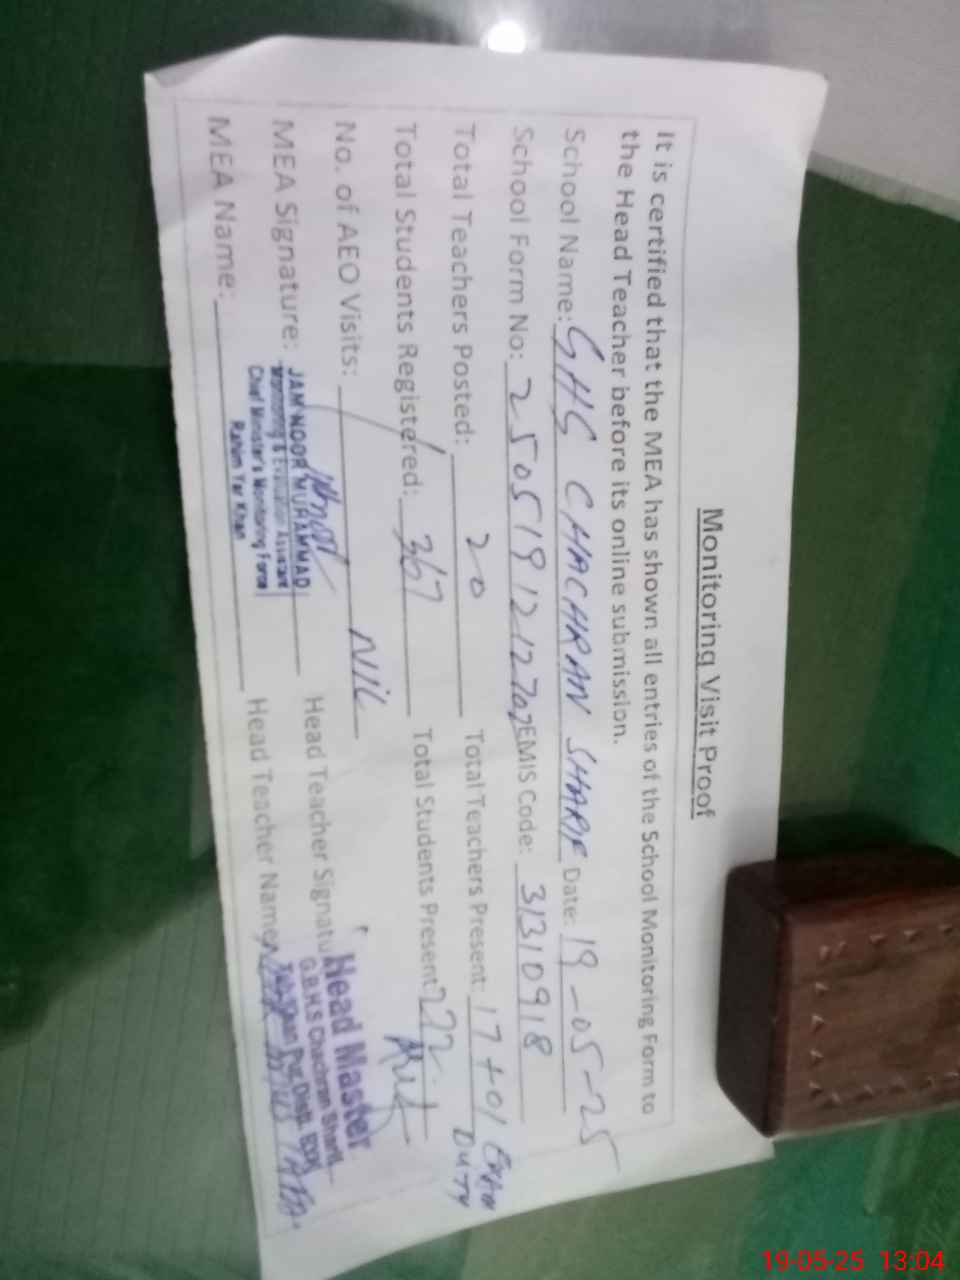 Monitoring Visit Proof
It is certified that the MEA has shown all entries of the School Monitoring Form to
the Head Teacher before its online submission.
School Name: GHS CHACHRAN SHARIF Date: 19-05-25
School Form No: 25051912127 EMIS Code: 31310918
Total Teachers Posted: 20 Total Teachers Present: 17+01 EXAM DUTY
Total Students Registered: 367 Total Students Present: 272
No. of AEO Visits: NIL
MEA Signature: Head Teacher Signature
JAM NOOR MUHAMMAD
Monitoring & Evaluation Assistant
Chief Minister's Monitoring Force
Rahim Yar Khan
Head Master
G.B.H.S Chachran Sharif
MEA Name: Head Teacher Name
19-05-25 13:04